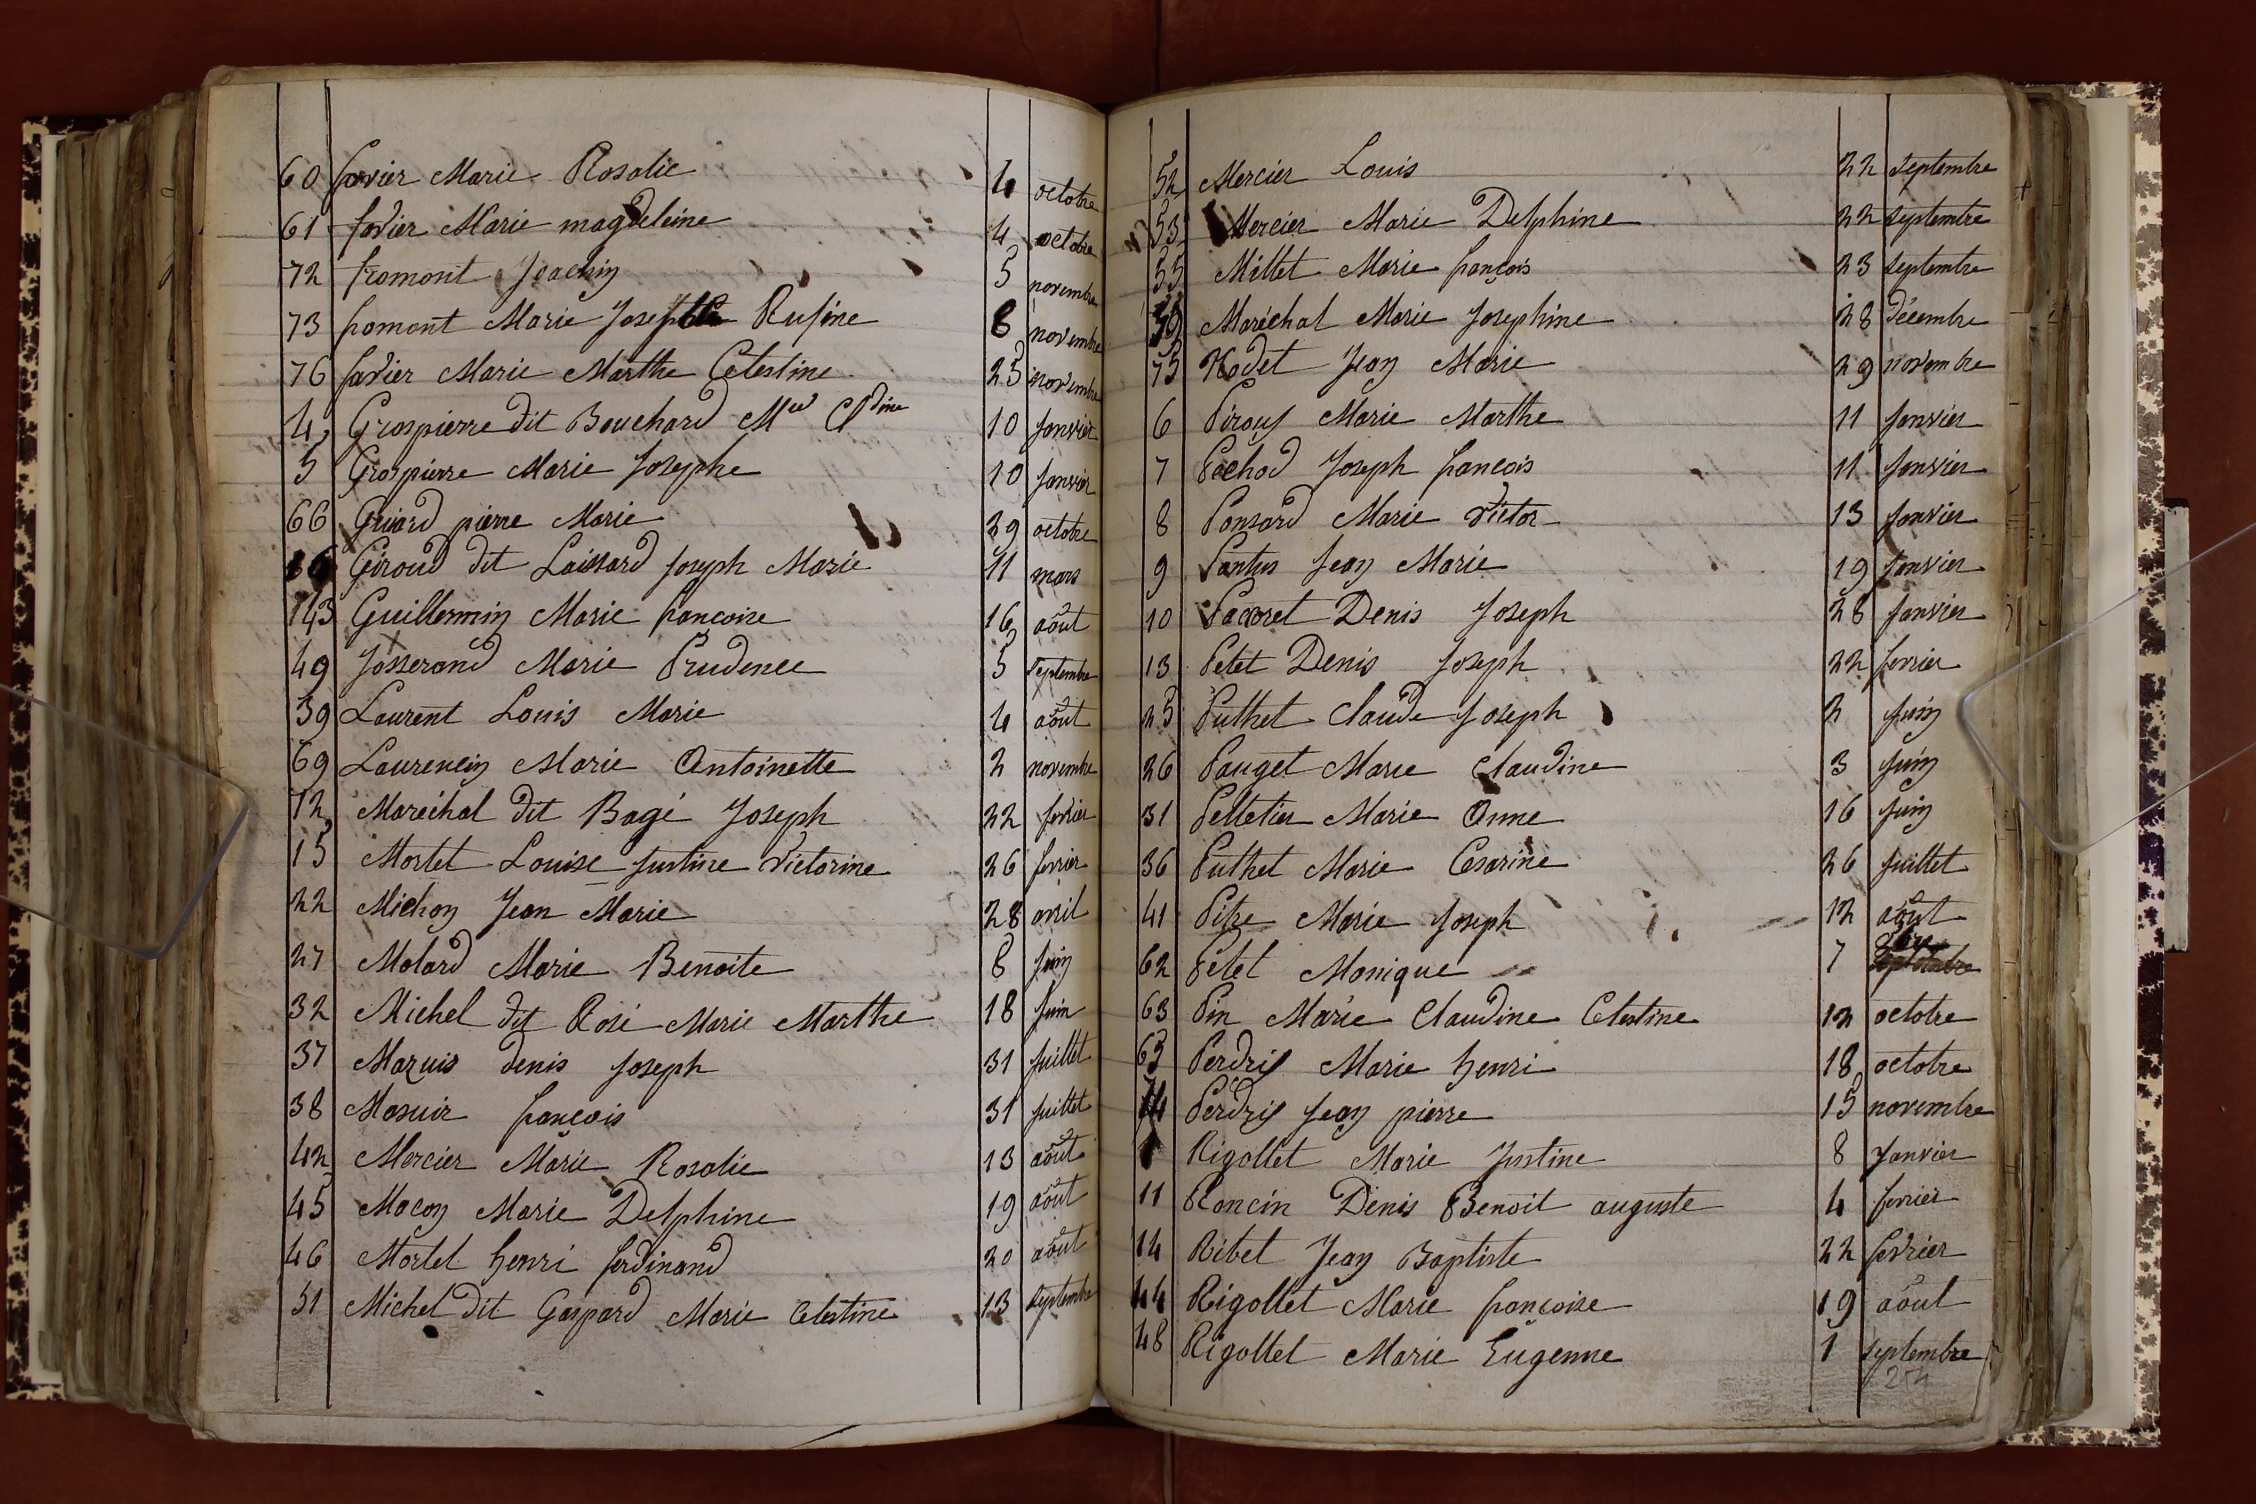 60 favier Marie Rosalie 4 octobre
61 favier Marie magdeleine 4 octobre
72 fromont Joachin 5 novembre
73 fromont Marie Josephte Rufine 8 novembre
76 favier Marie Marthe Celestine 25 novembre
4 Grospierre dit Bouchard Mie Cldine 10 janvier
5 Grospierre Marie Josephe 10 janvier
66 Guiard pierre Marie 29 octobre
16 Giroud dit Laissard joseph Marie 11 mars
43 Guillermin Marie françoise 16 août
49 Josserand Marie Prudence 5 septembre
39 Laurent Louis Marie 4 août
69 Laurencin Marie Antoinette 2 novembre
12 Maréchal dit Bagé Joseph 22 fevrier
15 Mortet Louise justine victorine 26 fevrier
22 Michon Jean Marie 28 avril
27 Molard Marie Benoite 8 juin
32 Michel dit Rosé Marie Marthe 18 juin
37 Mazuis denis joseph 31 juillet
38 Mosuir françois 31 juillet
42 Mercier Marie Rosalie 13 août
45 Macon Marie Delphine 19 août
46 Mortel henri ferdinand 20 août
51 Michel dit Gaspard Marie Celestine 13 septembre
52 Mercier Louis 22 septembre
53 Mercier Marie Delphine 22 septembre
55 Millet Marie françois 23 septembre
Maréchal Marie Josephine 28 décembre
75 Nodet Jean Marie 29 novembre
6 Piroux Marie Marthe 11 janvier
7 Pochod Joseph françois 11 janvier
8 Ponsard Marie victor 13 janvier
9 Pantus Jean Marie 19 janvier
10 Pacoret Denis Joseph 28 janvier
13 Petet Denis Joseph 22 fevrier
25 Puthet Claude Joseph 2 juin
26 Pauget Marie Claudine 3 juin
31 Pelletier Marie Anne 16 juin
36 Puthet Marie Cesarine 26 juillet
41 Pitre Marie Joseph 12 août
62 Petet Monique 7
63 Pin Marie Claudine Celestine 12 octobre
65 Perdrix Marie henri 18 octobre
74 Perdrix Jean pierre 15 novembre
Rigollet Marie Justine 8 Janvier
11 Roncin Denis Benoit auguste 4 fevrier
14 Ribet Jean Baptiste 22 fevrier
44 Rigollet Marie françoise 19 août
48 Rigollet Marie Eugenne 1 septembre
254